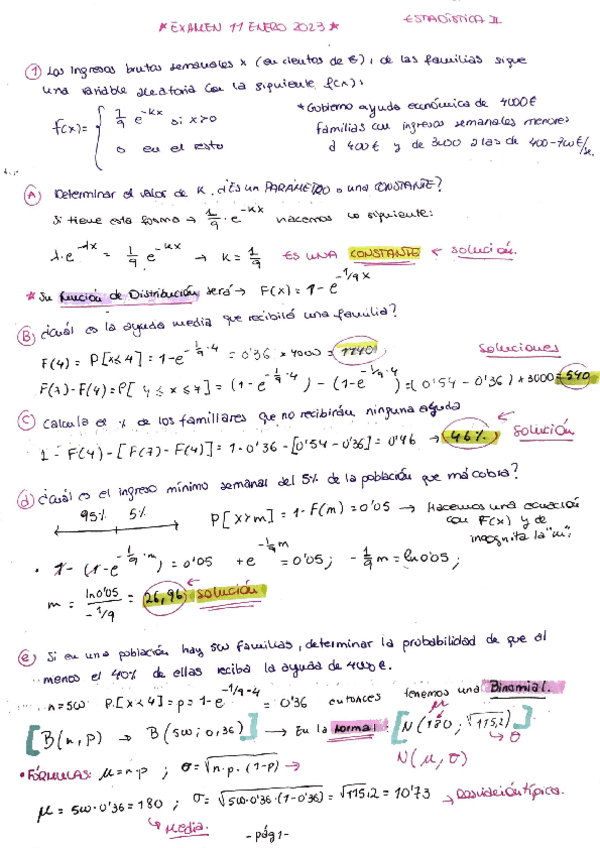 * EXAMEN 11 ENERO 2023 *
ESTADÍSTICA II
① Los ingresos brutos semanales x (en cientos de €), de las familias sigue
una variable aleatoria con la siguiente f(x):
f(x) = { 1/9 e^-kx si x>0
0 en el resto
* Gobierno ayuda económica de 4000€
familias con ingresos semanales menores
a 400€ y de 3000 a las de 400-700€/se.
Ⓐ Determinar el valor de K. ¿Es un PARÁMETRO o una CONSTANTE?
Si tiene esta forma → 1/9 · e^-kx hacemos lo siguiente:
λ·e^-λx = 1/9 e^-kx → K = 1/9 ES UNA CONSTANTE ← solución.
* Su Función de Distribución será → F(x) = 1 - e^-1/9x
Ⓑ ¿Cuál es la ayuda media que recibiló una familia?
F(4) = P[x≤4] = 1-e^-1/9·4 = 0'36 × 4000 = 1440
soluciones
F(7)-F(4) = P[4≤x≤7] = (1-e^-1/9·4) - (1-e^-1/9·4) = (0'54 - 0'36) * 3000 = 540
Ⓒ Calcula el % de los familiares que no recibirán ninguna ayuda
1 - F(4) - [F(7) - F(4)] = 1 - 0'36 - [0'54 - 0'36] = 0'46 → 46% ← solución
ⓓ ¿Cuál es el ingreso mínimo semanal del 5% de la población que má cobra?
95% 5%
P[x>m] = 1 - F(m) = 0'05 → Hacemos una ecuación
con F(x) y de
incognita la "m":
• 1 - (1-e^-1/9·m) = 0'05 + e^-1/9m = 0'05; -1/9m = ln0'05;
m = ln0'05 / -1/9 = 26,96 ← solución
ⓔ Si en una población hay 500 familias, determinar la probabilidad de que al
menos el 40% de ellas reciba la ayuda de 4000€.
n=500 P[x<4] = p = 1-e^-1/9·4 = 0'36 entonces tenemos una Binomial.
[B(n,p) → B(500; 0,36)] → En la Normal: [N(180; √115,2)]
μ
↳ σ
N(μ,σ)
• FÓRMULAS: μ = n·p ; σ = √n·p·(1-p) →
μ = 500·0'36 = 180 ; σ = √500·0'36·(1-0'36) = √115,2 = 10'73 → Desviación típica.
↳ Media.
- pág 1 -